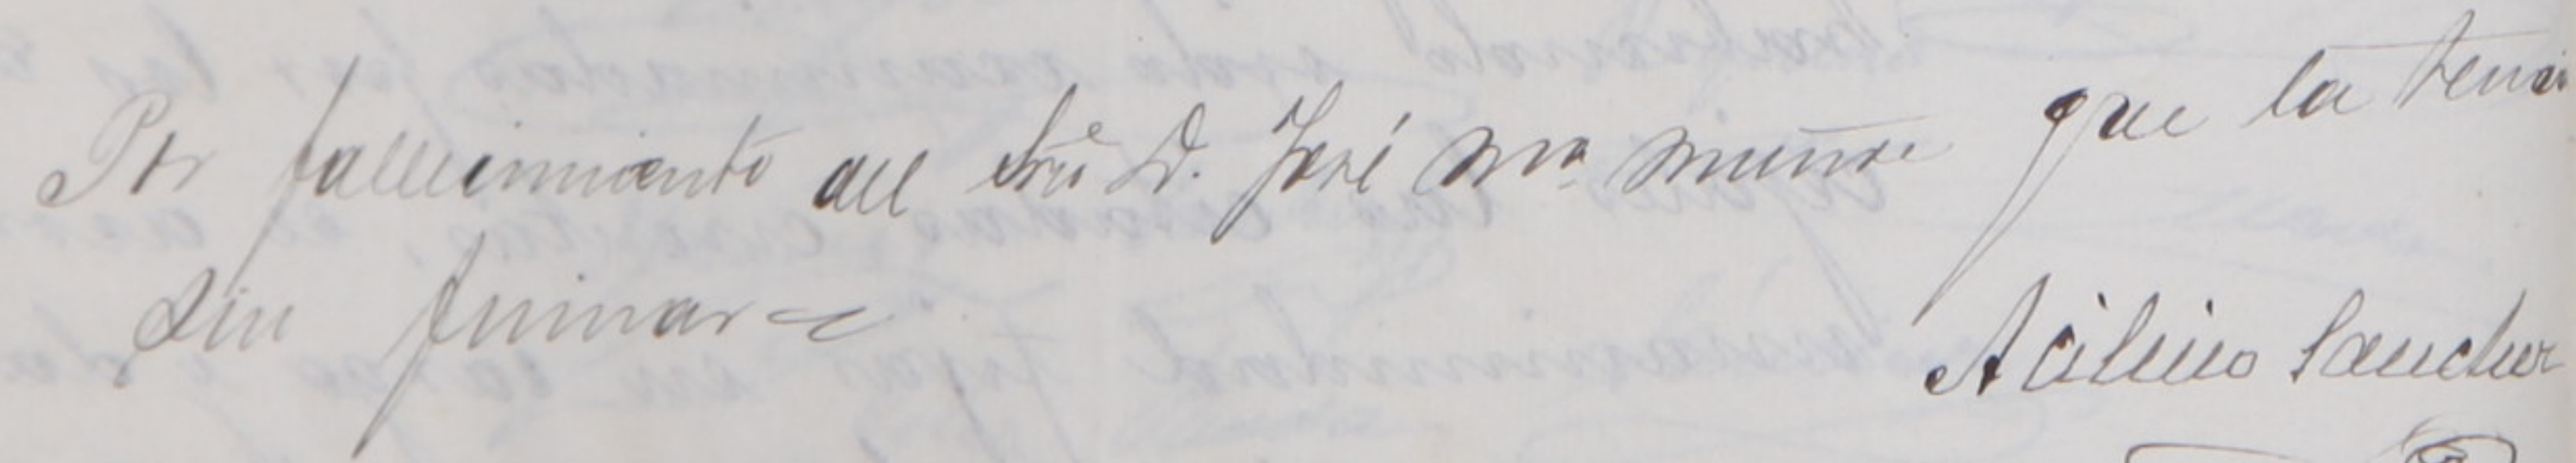 Por fallecimiento del Srio D. José Mª Muñoz que la tenia
sin firmar=
Acilino Sanchez